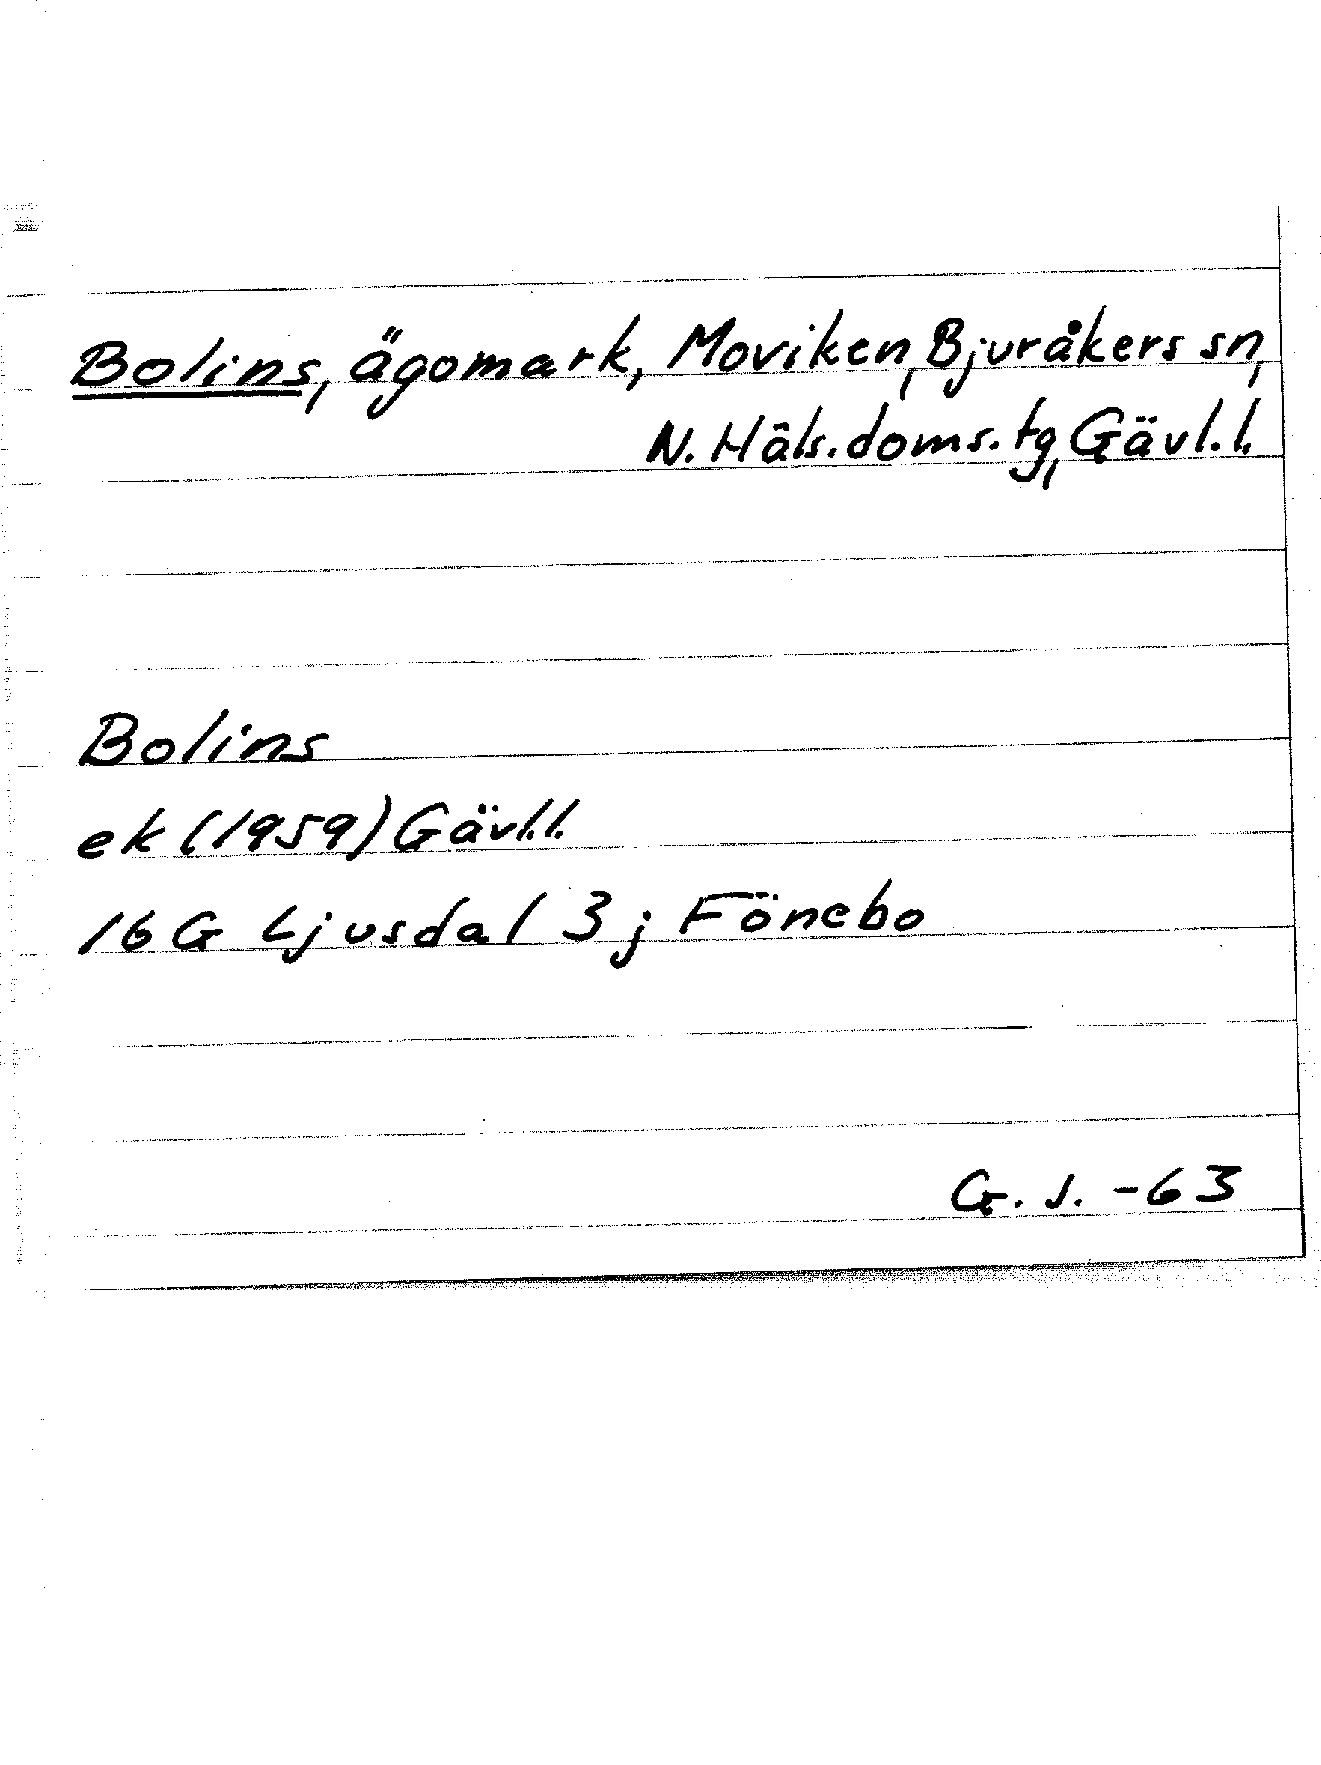 Bolins, ägomark, Moviken, Bjuråkers sn,
N. Häls. doms. tg, Gävl. l.
Bolins
ek (1959) Gävl.l.
16 G Ljusdal 3 j Fönebo
G. J. -63